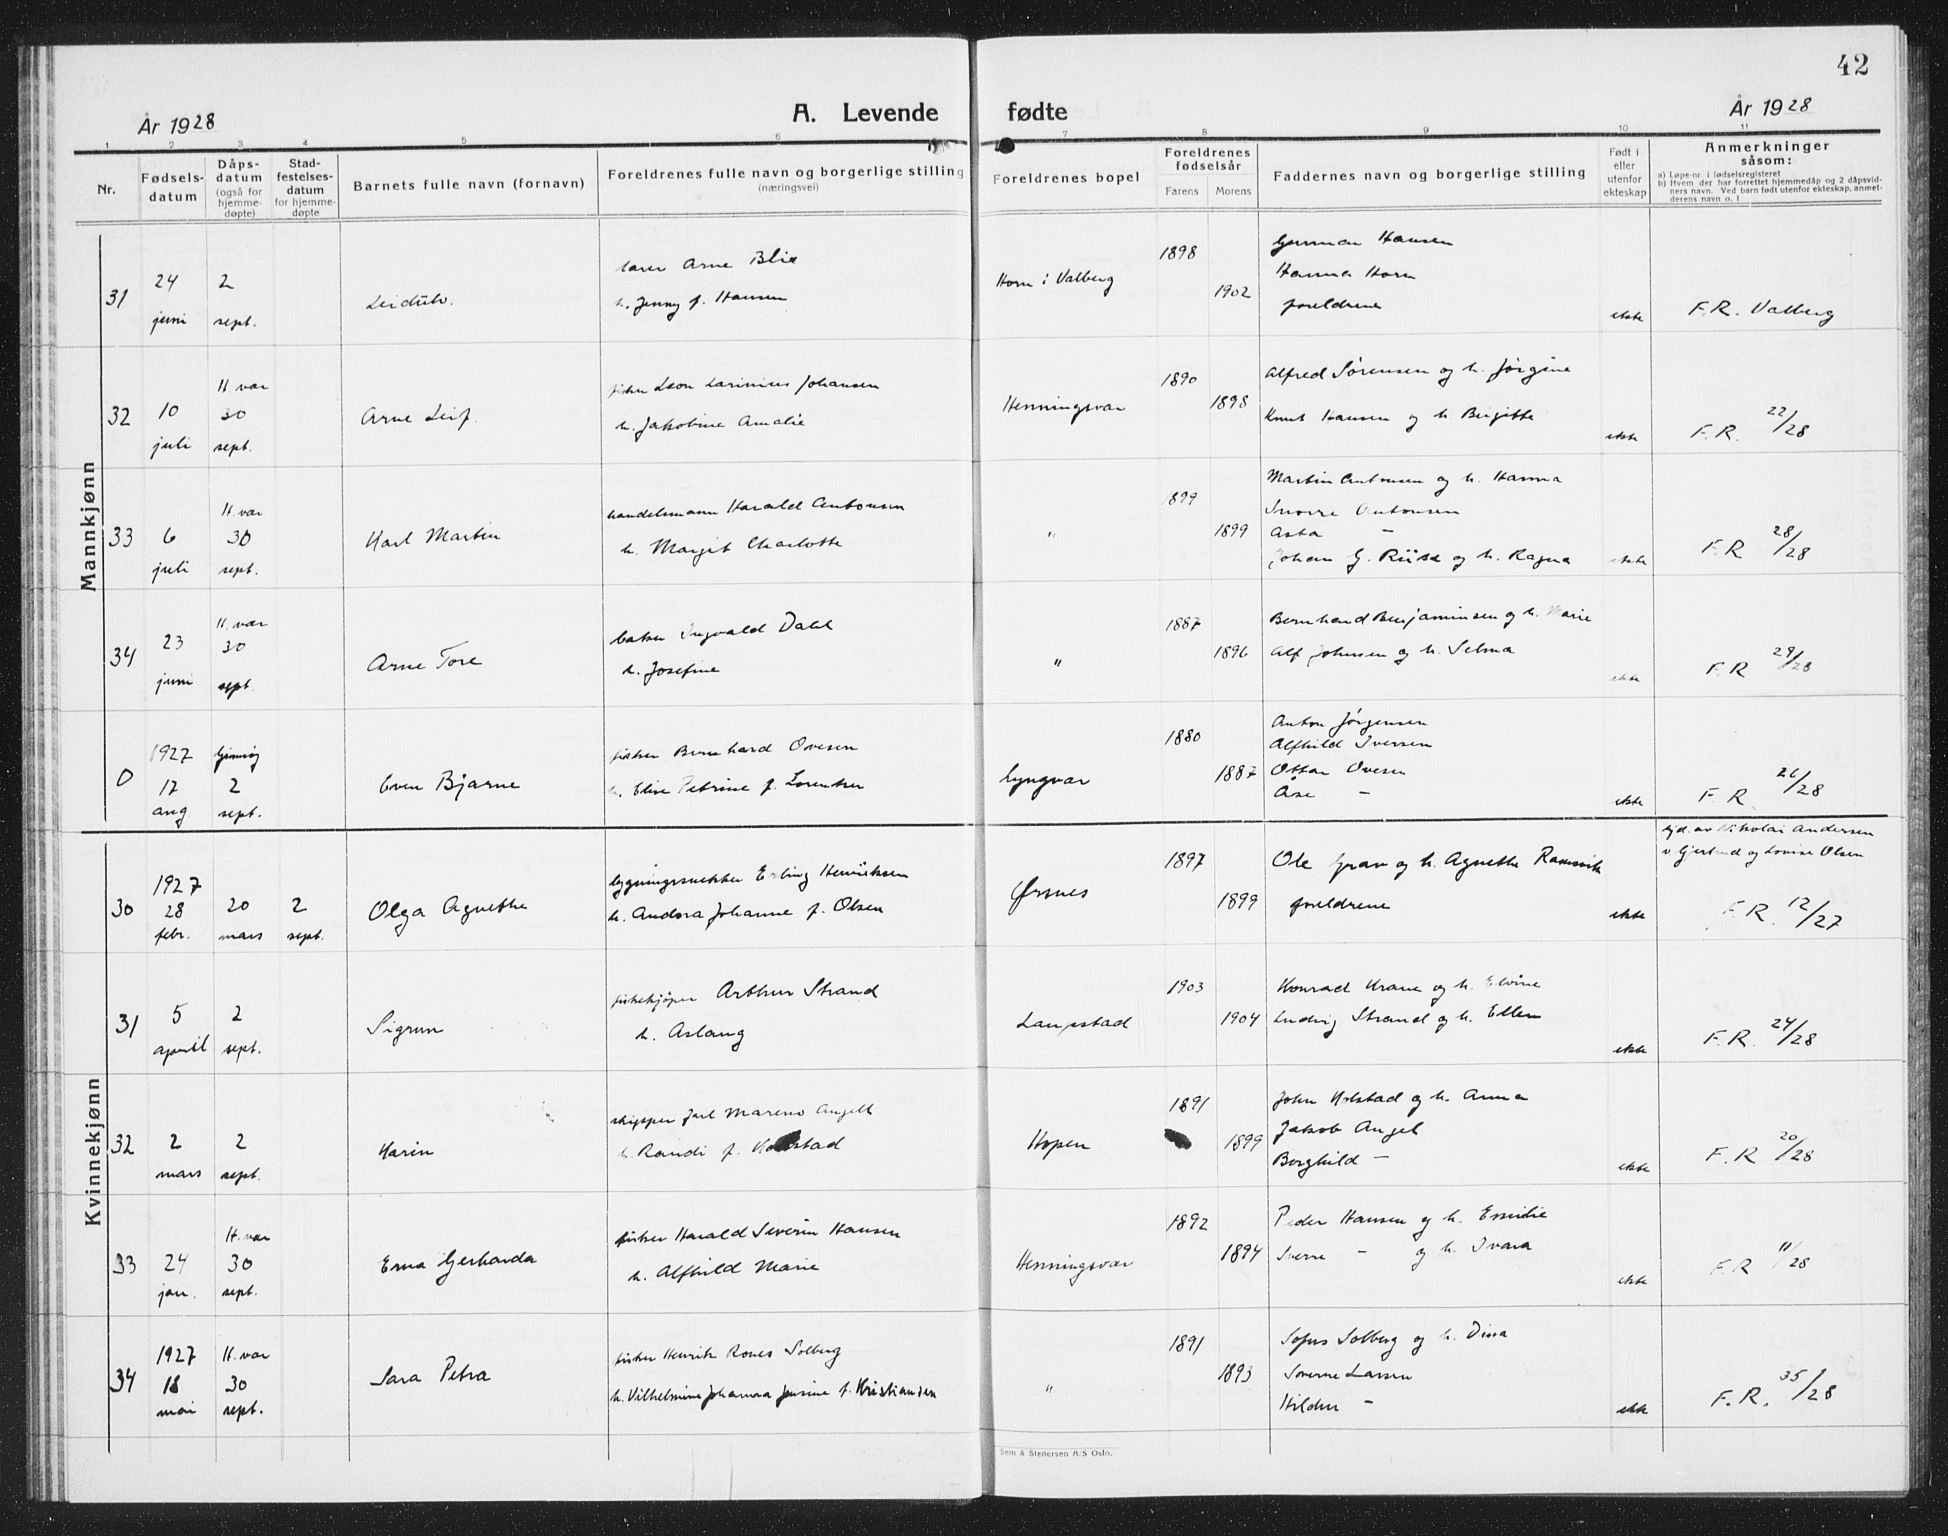 42
År 1928
A. Levende
fødte
År 1928
1 2 3 4 5 6 7 8 9 10 11
Nr.
Fødsels-
datum
Dåps-
datum
(også for
hjemme-
døpte)
Stad-
festelses-
datum
for hjemme-
døpte
Barnets fulle navn (fornavn)
Foreldrenes fulle navn og borgerlige stilling
(næringsvei)
Foreldrenes bopel
Foreldrenes
fødselsår
Farens Morens
Faddernes navn og borgerlige stilling
Født i
eller
utenfor
ekteskap
Anmerkninger
såsom:
a) Løpe-nr. i fødselsregisteret
b) Hvem der har forrettet hjemmedåp og 2 dåpsvid-
ners navn. Ved barn født utenfor ekteskap, anmel-
derens navn o. l
Mannkjønn
31
24
juni
2
sept.
Leidulv.
lærer Arne Blix
h. Jenny f. Hansen
Horn i Valberg
1898
1902
Hansen
Hanna Horn
foreldrene
ekte
F.R. Valberg
32
10
juli
H. vær
30
sept.
Arne Leif
fisker Leon Larinius Johansen
h. Jakobine Amalie
Henningsvær
1890
1898
Alfred Sørensen og h. Jørgine
Knut Hansen og h. Birgitte
ekte
F.R. 22/28
33
6
juli
H. vær
30
sept.
Karl Martin
handelsmann Harald Antonsen
h. Margit Charlotte
"
1899
1899
Martin Antonsen og h. Hanna
Snorre Antonsen
Asta —
Johan G. Riise og h. Ragna
ekte
F.R 28/28
34
23
juni
H. vær
30
sept.
Arne Tore
baker Ingvald Dahl
h. Josefine
"
1887
1896
Bernhard Benjaminsen og h. Marie
Alf Johnsen og h. Selma
ekte
F.R 29/28
0
1927
17
aug
Gimsøy
2
sept.
Even Bjarne
fisker Bernhard Ovesen
h. Elise Petrine f. Lorentsen
Lyngvær
1880
1887
Anton Jörgensen
Alfhild Iversen
Ottar Ovesen
Åse —
ekte
F.R 26/28
Kvinnekjønn
30
1927
28
febr.
20
mars
2
sept.
Olga Agnethe
bygningssnekker Erling Henriksen
h. Andora Johanne f. Olsen
Ørsnes
1897
1899
Ole Grav og h. Agnethe Ramsvik
foreldrene
ekte
hjd. av Nikolai Andersen
v. Gjertrud og Lovise Olsen
F.R. 12/27
31
5
april
2
sept.
Sigrun
fiskekjøper Arthur Strand
h. Aslaug
Laupstad
1903
1904
Konrad Krane og h. Elvine
Ludvig Strand og h. Ellen
ekte
F.R. 24/28
32
2
mars
2
sept.
Karin
skipper Jarl Mareno Angell
h. Randi f.
Hopen
1891
1899
John Holstad og h. Anna
Jakob Angel
Borghild —
ekte
F.R 20/28
33
24
jan.
H. vær
30
sept.
Erna Gerharda
fisker Harald Severin Hansen
h. Alfhild Marie
Henningsvær
1892
1894
Peder Hansen og h. Emilie
Sverre — og h. Ivara
ekte
F.R 11/28
34
1927
18
mai
H. vær
30
sept.
Sara Petra
fisker Henrik Rones Solberg
h. Vilhelmine Johanna Jensine f. Kristiansen
"
1891
1893
Sofus Solberg og h. Dina
Soverne Larsen
Hildur —
ekte
F.R. 35/28
Sem & Stenersen A/S Oslo.